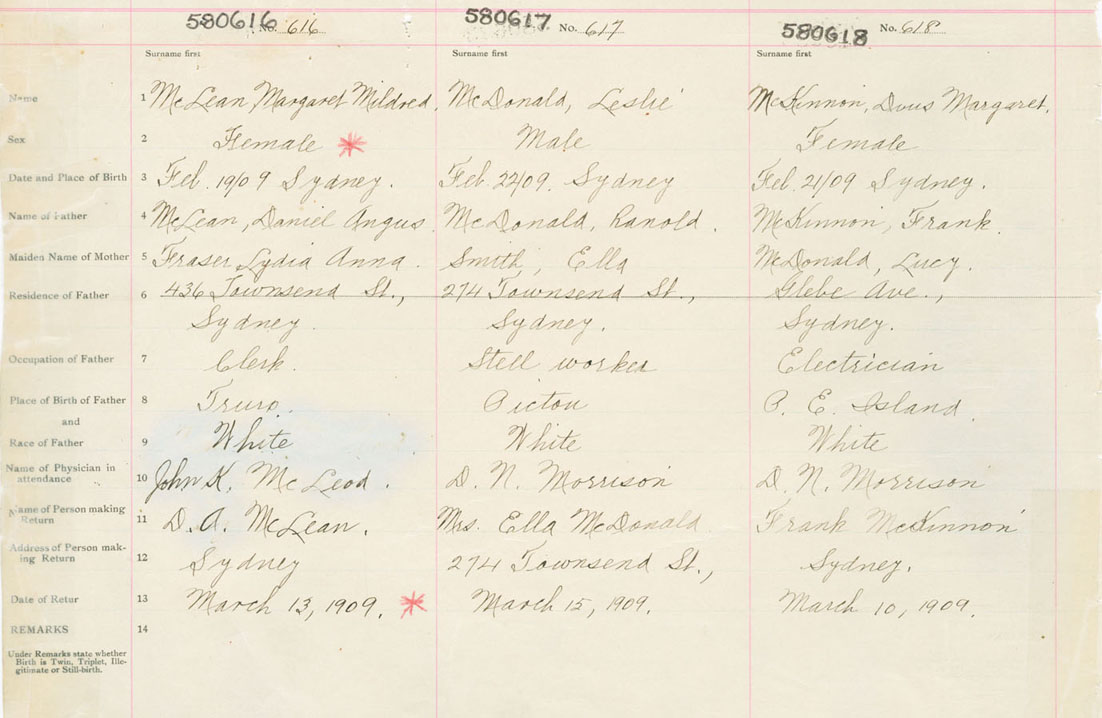 580616 No. 616 580617 No. 617 580618 No. 618
Surname first Surname first Surname first
Name 1 McLean, Margaret Mildred. McDonald, Leslie McKinnon, Dous Margaret.
Sex 2 Female Male Female
Date and Place of Birth 3 Feb. 19/09 Sydney. Feb. 22/09. Sydney Feb. 21/09 Sydney.
Name of Father 4 McLean, Daniel Angus. McDonald, Ranold. McKinnon, Frank.
Maiden Name of Mother 5 Fraser, Lydia Anna. Smith, Ella McDonald, Lucy.
Residence of Father 6 436 Townsend St., 274 Townsend St., Glebe Ave.,
Sydney. Sydney. Sydney.
Occupation of Father 7 Clerk. Stell worker Electrician
Place of Birth of Father 8 Truro. Pictou P. E. Island.
and
Race of Father 9 White White White
Name of Physician in
attendance 10 John K. McLeod. D. N. Morrison D. N. Morrison
Name of Person making
Return 11 D. A. McLean. Mrs. Ella McDonald Frank McKinnon
Address of Person mak-
ing Return 12 Sydney 274 Townsend St., Sydney.
Date of Retur 13 March 13, 1909. March 15, 1909. March 10, 1909.
REMARKS 14
Under Remarks state whether
Birth is Twin, Triplet, Ille-
gitimate or Still-birth.